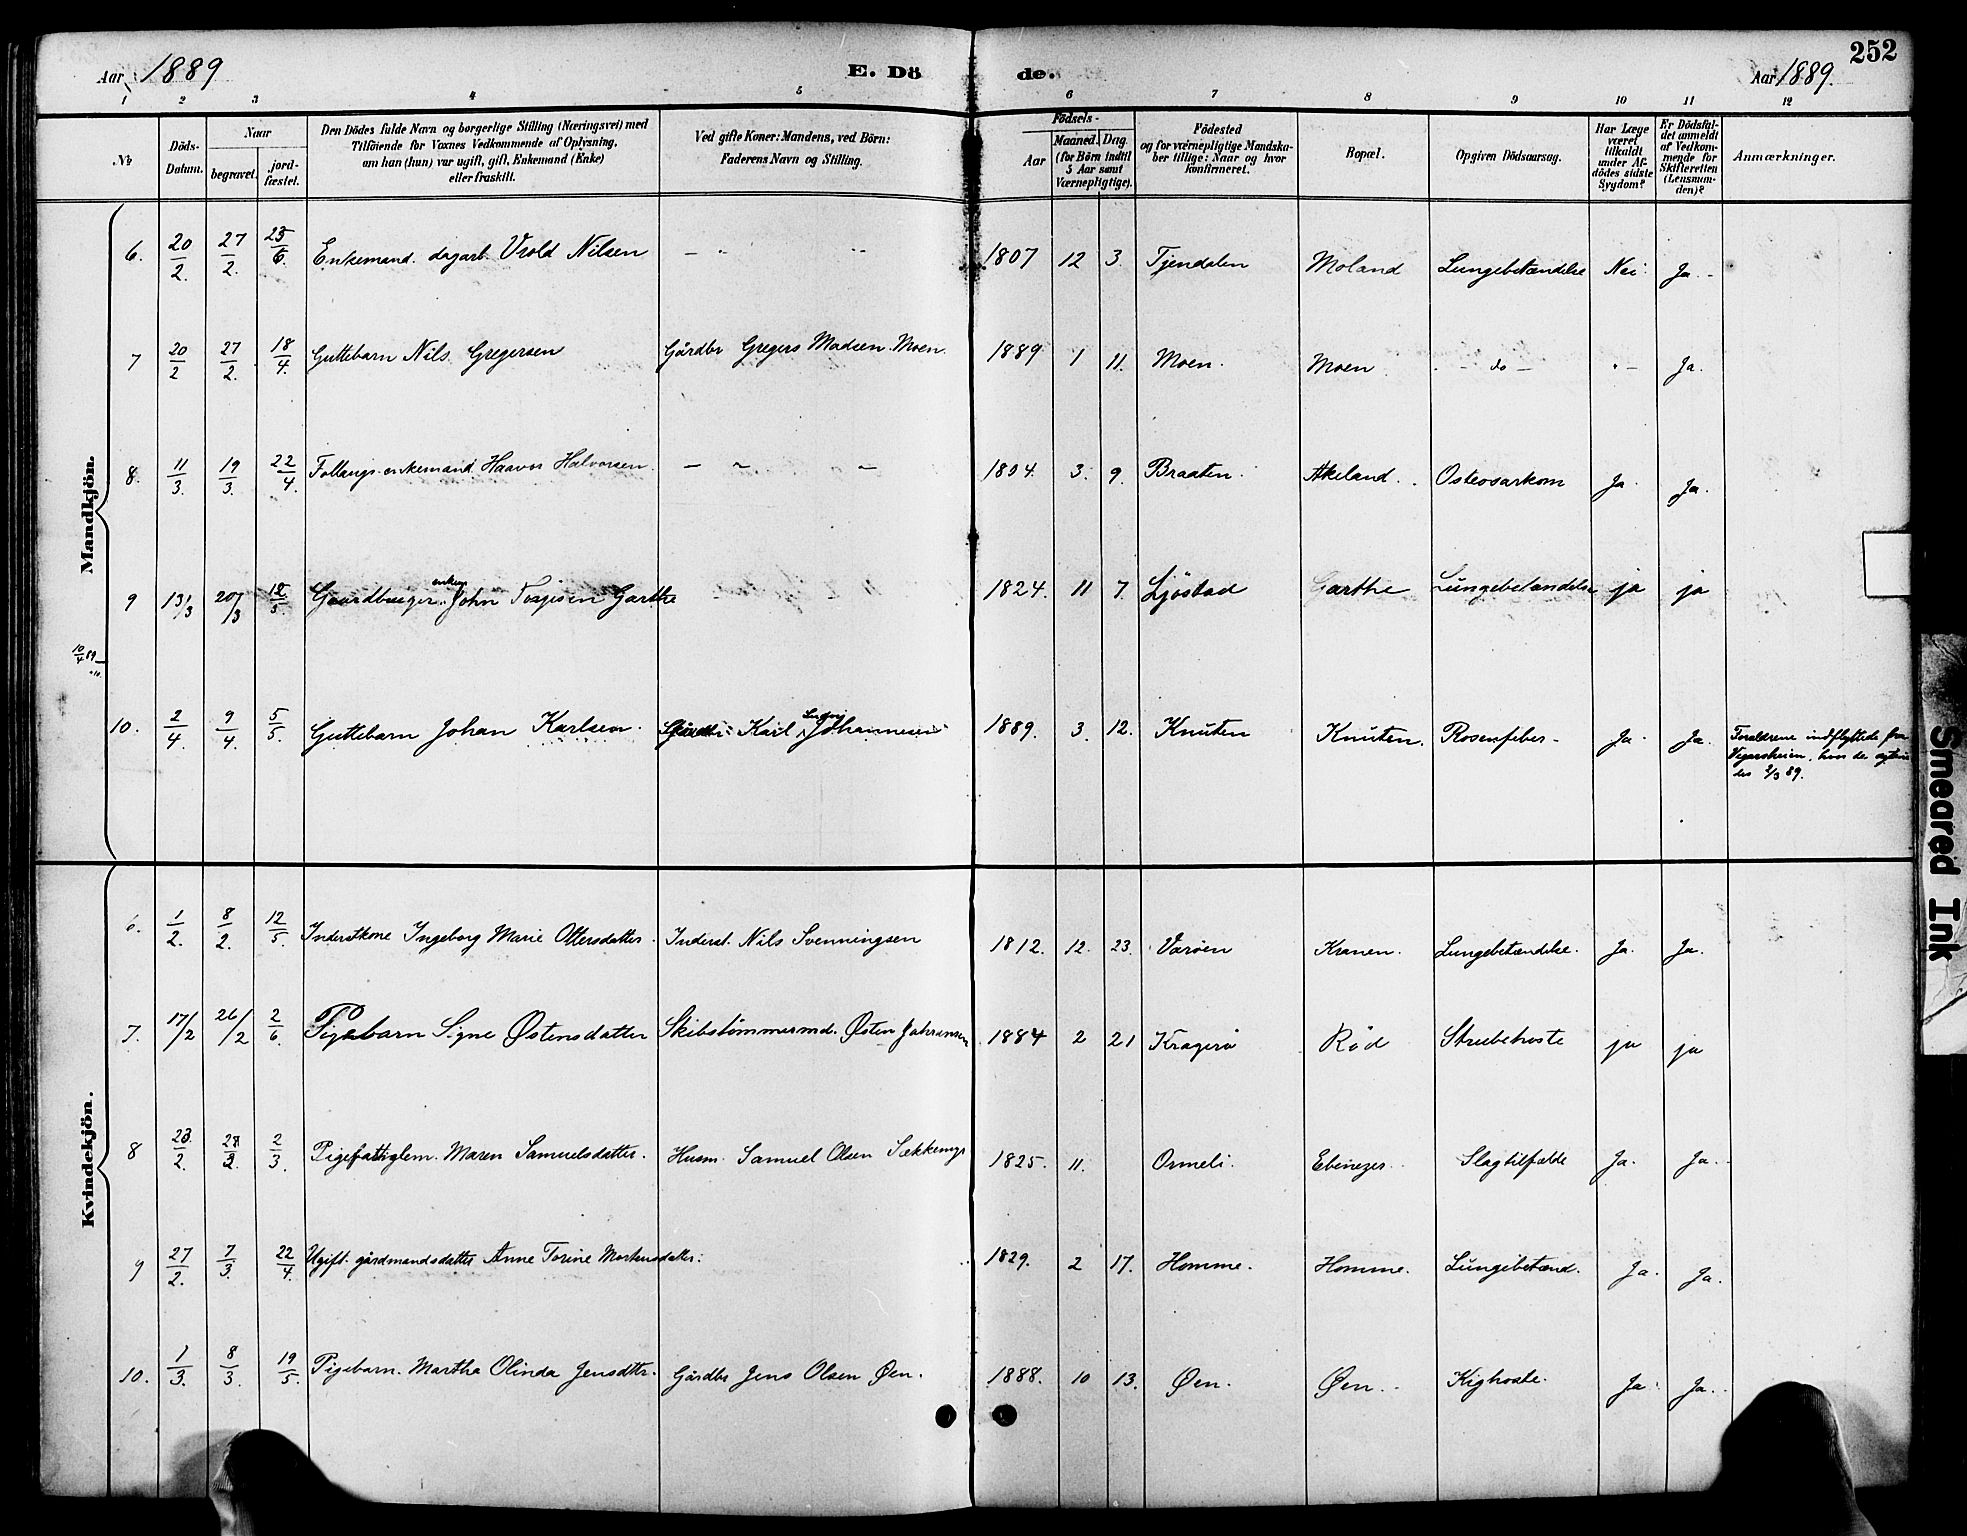 252
Aar 1889 E. Döde. Aar 1889.
1 2 3 4 5 6 7 8 9 10 11 12
No
Döds-Datum.
Naar
begravet.
jord-fæstet.
Den Dödes fulde Navn og borgerlige Stilling (Næringsvei) med
Tilföiende for Voxnes Vedkommende af Oplysning,
om han (hun) var ugift, gift, Enkemand (Enke)
eller fraskilt.
Ved gifte Koner: Mandens, ved Börn:
Faderens Navn og Stilling.
Födsels-
Aar
Maaned. Dag.
(for Börn indtil
5 Aar samt
Værnepligtige).
Födested
og for værnepligtige Mandska-
ber tillige: Naar og hvor
konfirmeret.
Bopæl.
Opgiven Dödsaarsag.
Har Læge
været
tilkaldt
under Af-
dödes sidste
Sygdom?
Er Dödsfal-
det anmeldt
af Vedkom-
mende for
Skifteretten
(Lensman-
den)?
Anmærkninger.
Mandkjön.
6. 20/2. 27/2. 23/6. Enkemand. dagarb. Vrold Nilsen - " " 1807 12 3. Tjendalen Moland Lungebetændelse Nei Ja -
7 20/2 27/2. 18/4. Guttebarn Nils Gregersen Gårdbr Gregers Madsen Moen. 1889 1 11. Moen. Moen - do - " - Ja.
8. 11/3. 19/3. 22/4. Follaugs enkemand Haavor Halvorsen - " - 1804. 3. 9. Braaten. Akeland. Osteosarkom Ja. Ja.
9 13/3 20/3 12/5 Gaardbruger, enkem John Terjesen Garthe 1824. 11 7. Ljöstad Garthe Lungebetændelse ja ja
10/4 89
10. 2/4. 9/4. 5/5. Guttebarn Johan Karlsen. Karl Ludvig Johannesen 1889. 3. 12. Knuten Knuten. Rosenfeber - Ja Ja. Forældrene indflyttede fra
Vegarsheien, hvor de
2/3 89.
Kvindekjön.
6. 1/2. 8/2. 12/5. Inderstkone Ingeborg Marie Ottersdatter. Inderst. Nils Svenningsen 1812. 12. 23. Varöen Kranen. Lungebetændelse. Ja. Ja.
7. 17/2 26/2 2/6. Pigebarn Signe Østensdatter Skibstömmermd. Østen Johansen 1884 2 21 Kragerö Röd Strubehoste ja ja
8 23/2. 28/2. 2/3. Pigefattiglem. Maren Samuelsdatter. Husm. Samuel Olsen Sækkemyr 1825. 11. Ormeli. Ebenezer. Slagtilfælde Ja. Ja.
9 27/2. 7/3. 22/4. Ugift. gårdmandsdatter Anne Torine Mortensdatter. 1829. 2 17. Homme. Homme. Lungebetænd. Ja. Ja.
10. 1/3. 8/3. 19/5. Pigebarn. Martha Olinda Jensdttr. Gårdbr Jens Olsen Øen. 1888. 10 13. Øen. Øen. Kighoste. Ja. Ja.
Smeared Ink